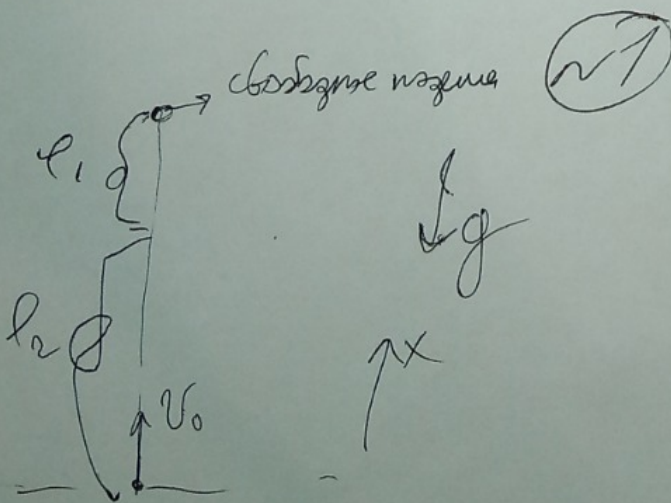 свободное падение №1
l₁
g
l₂
x
V₀